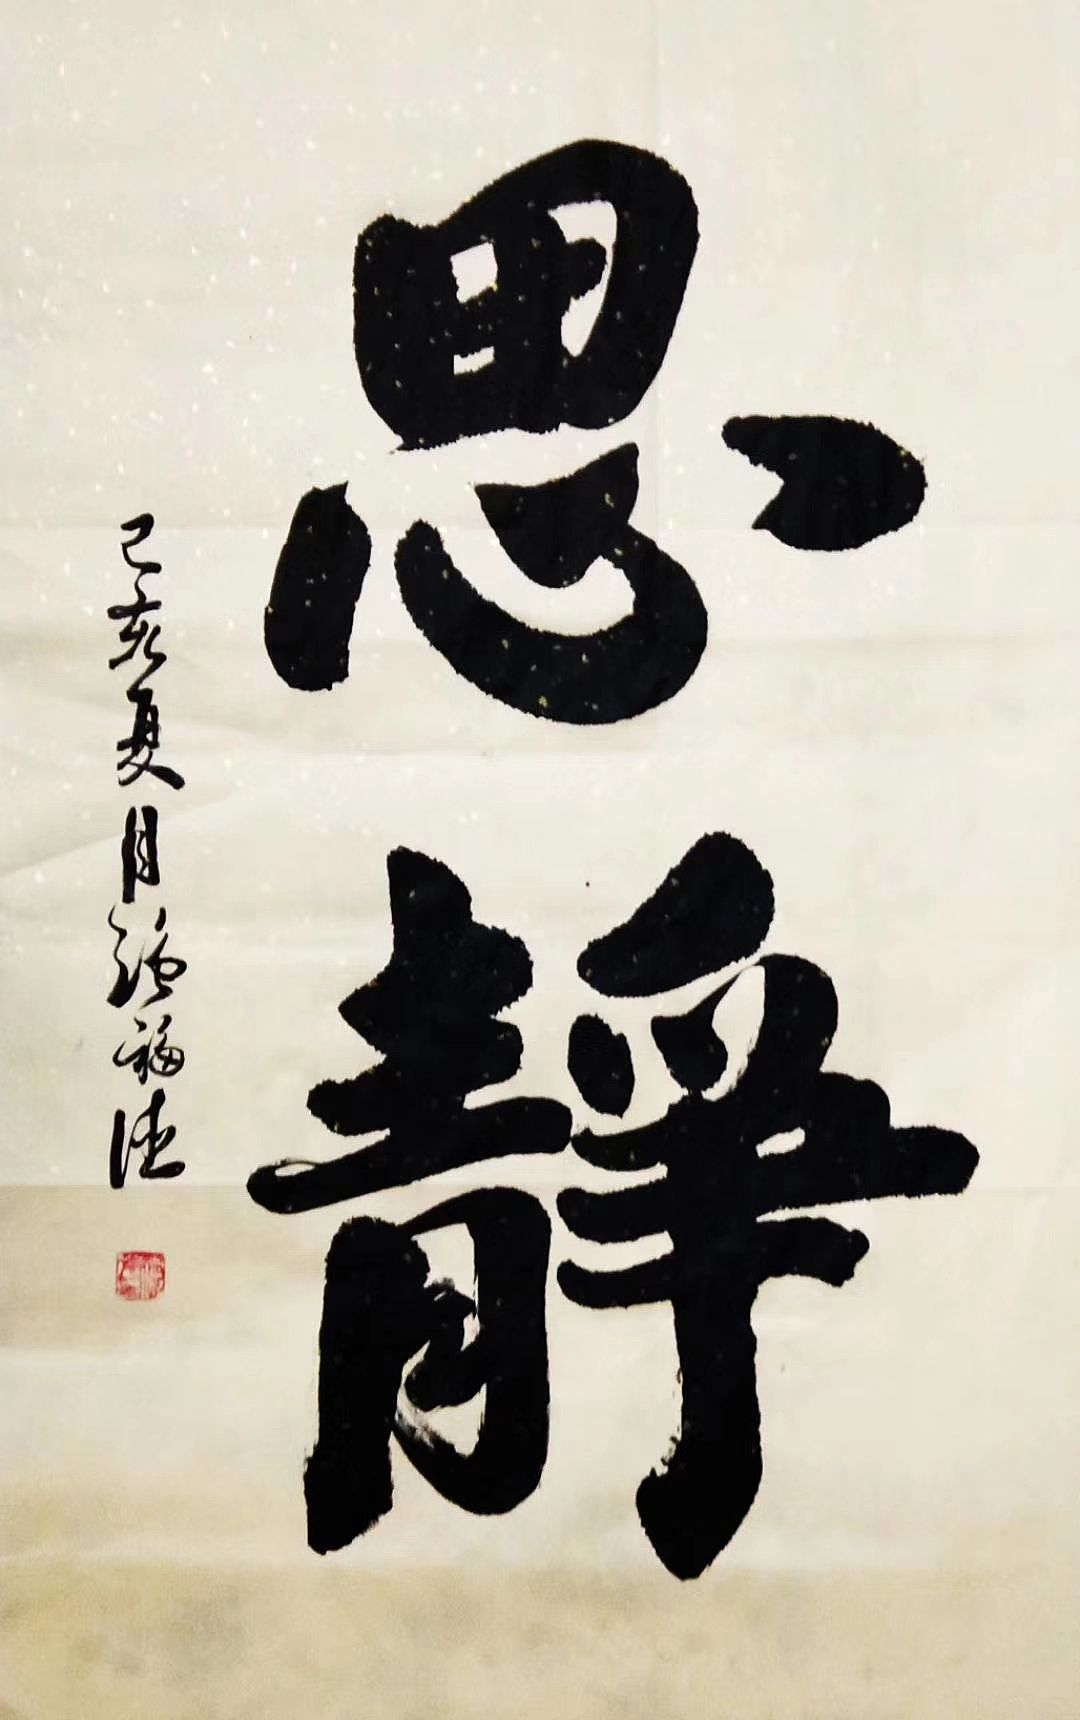 思靜
己亥夏月
福德